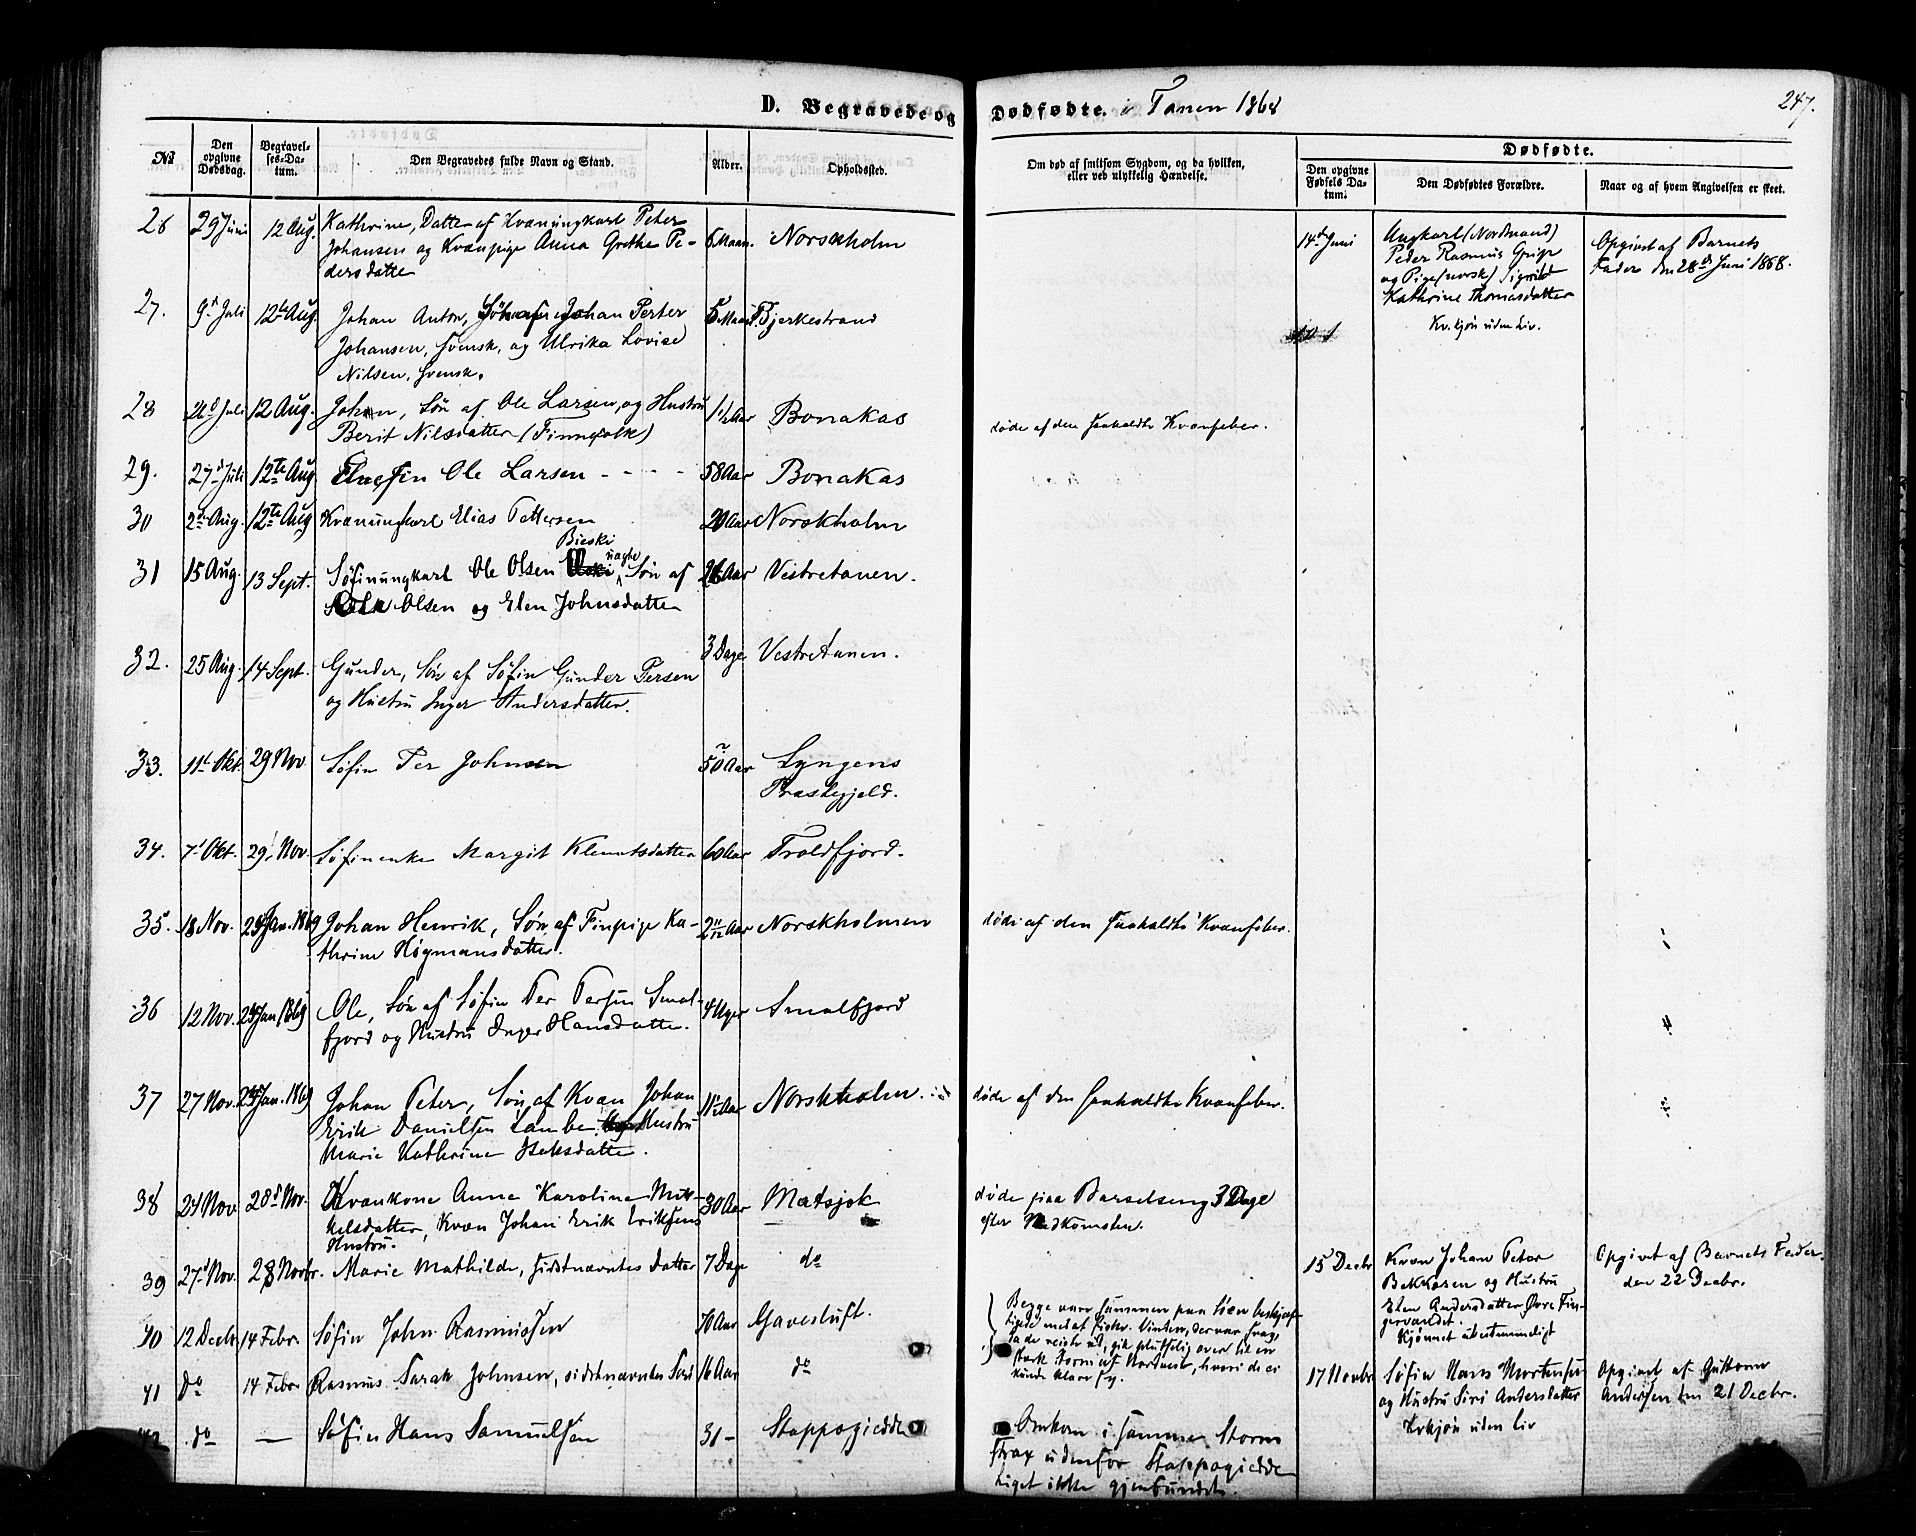 D. Begravede og Dødfødte. i Tanen 1868
247.
No
Den opgivne Dødsdag.
Begravelses-Datum.
Den Begravedes fulde Navn og Stand.
Alder.
Opholdssted.
Om død af smitsom Sygdom, og da hvilken, eller ved ulykkelig Hændelse.
Dødfødte.
Den opgivne Fødsels Datum:
Den Dødfødtes Forældre.
Naar og af hvem Angivelsen er skeet.
26 29 Juni 12 Aug. Kathrine, Datter af Kvænungkarl Peter 6 Maan. Norskholm
Johansen og Kvænpige Anna Grethe Pe-
dersdatter
14de Juni Ungkarl (Nordmand)
Peder Rasmus
og Pige (norsk) Sigrid
Kathrine Thomasdatter
Kv.kjøn uden Liv.
Opgivet af Barnets
Fader den 28de Juni 1868.
27. 9de Juli 12te Aug. Johan Anton, Søn af Johan Peter 5 Maan. Bjerkestrand
Johansen, svensk, og Ulrika Lovise
Nilsen, svensk.
28 Juli 12 Aug. Johan, Søn af Ole Larsen, og Hustru 1½ Aar Bonakas
Berit Nilsdatter (Finnefolk)
døde af den saakaldte Kvænfeber.
29. 27de Juli 12te Aug. Elvefin Ole Larsen - - - - - 58 Aar Bonakas
30 2den Aug. 12te Aug Kvænungkarl Elias Pettersen 20 Aar Norskholm
31 15 Aug. 13 Sept. Søfinungkarl Ole Olsen Bieski uægte Søn af Aar Vestretanen.
Olsen og Elen Johnsdatter
32. 25 Aug. 14 Sept. Gunder, Søn af Søfin Gunder Persen 3 Dage Vestretanen.
og Hustru Inger Andersdatter.
33. 11te Okt. 29 Nov. Søfin Per Johnsen 50 Aar Lyngens
Præstegjeld.
34. 7de Okt. 29 Nov. Søfinenke Margit Klemetsdatter 60 Aar Troldfjord.
35. 18 Nov. 24 Jan. 1869 Johan Henrik, Søn af Finpige Ka- 2 11/12 Aar Norskholmen
thrine Høgmansdatter.
døde af den saakaldte Kvænfeber.
36 12 Nov. 24 Jan 1869 Ole, Søn af Søfin Per Persen Smal- 4 Uger Smalfjord
fjord og Hustru Inger Hansdatter.
37 27 Nov. 24 Jan. 1869 Johan Peter, Søn af Kvæn Johan Aar Norskholm.
Erik Danielsen Lambe og Hustru
Marie Kathrine Isaksdatter.
døde af den saakaldte Kvænfeber.
38 24 Nov 28de Nov. Kvænkone Anna Karoline Mik- 30 Aar Matsjok
kelsdatter, Kvæn Johan Erik Eriksens
Hustru.
døde paa Barselseng 3 Dage
efter Nedkomsten.
39 27de Nov. 28 Novbr. Marie Mathilde, sidstnævntes Datter 7 Dage do
15 Decbr Kvæn Johan Peter
Bekkasen og Hustru
Elen Andersdatter, Øvre Fin-
gervandet.
Kjønnet ubestemmeligt
Opgivet af Barnets Fader
den 22 Decbr.
40 12 Decbr 14 Febr. Søfin John Rasmussen 70 Aar Gavesluft.
Begge vare sammen paa Søen beskjæf-
tigede med at fiske. Vinden, der var svag,
da de reiste ud, gik pludselig over til en
stærk Storm af Nordvest, hvori de ei
kunde klare sig.
41 do 14 Febr Rasmus Sarak Johnsen, sidstnævntes Søn 16 Aar do
17 Novbr Søfin Hans Mortensen
og Hustru Siri Andersdatter
Kvkjøn uden Liv
Opgivet af Guttorm
Andersen den 21 Decbr.
42 do — Søfin Hans Samuelsen 31 - Stappogiedde
Omkom i samme Storm
strax udenfor Stappogiedde
Liget ikke gjenfundet.